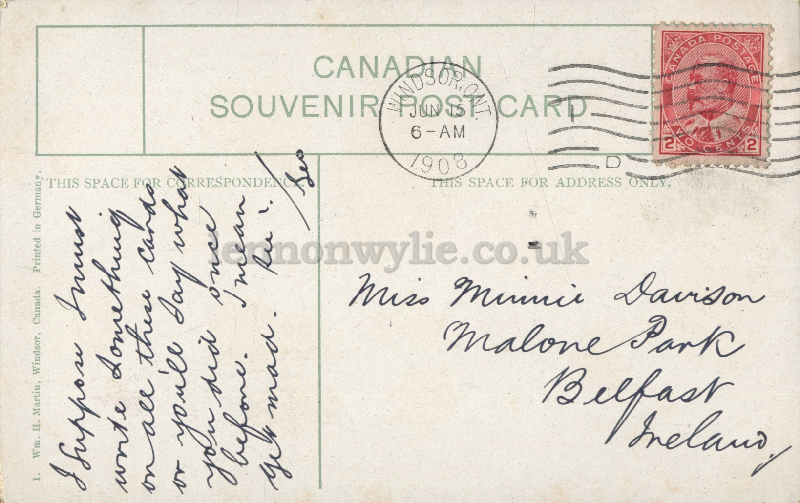 CANADIAN
SOUVENIR POST CARD
WINDSOR, ONT.
JUN 15
6-AM
1908
D
CANADA POSTAGE
2 TWO CENTS 2
THIS SPACE FOR CORRESPONDENCE.
THIS SPACE FOR ADDRESS ONLY.
1. Wm. H. Martin, Windsor, Canada. Printed in Germany.
I suppose I must
write something
on all these cards
or you'll say what
you did once
before. I mean
get mad.
Geo
Miss Minnie Davison
Malone Park
Belfast
Ireland
lennonwylie.co.uk